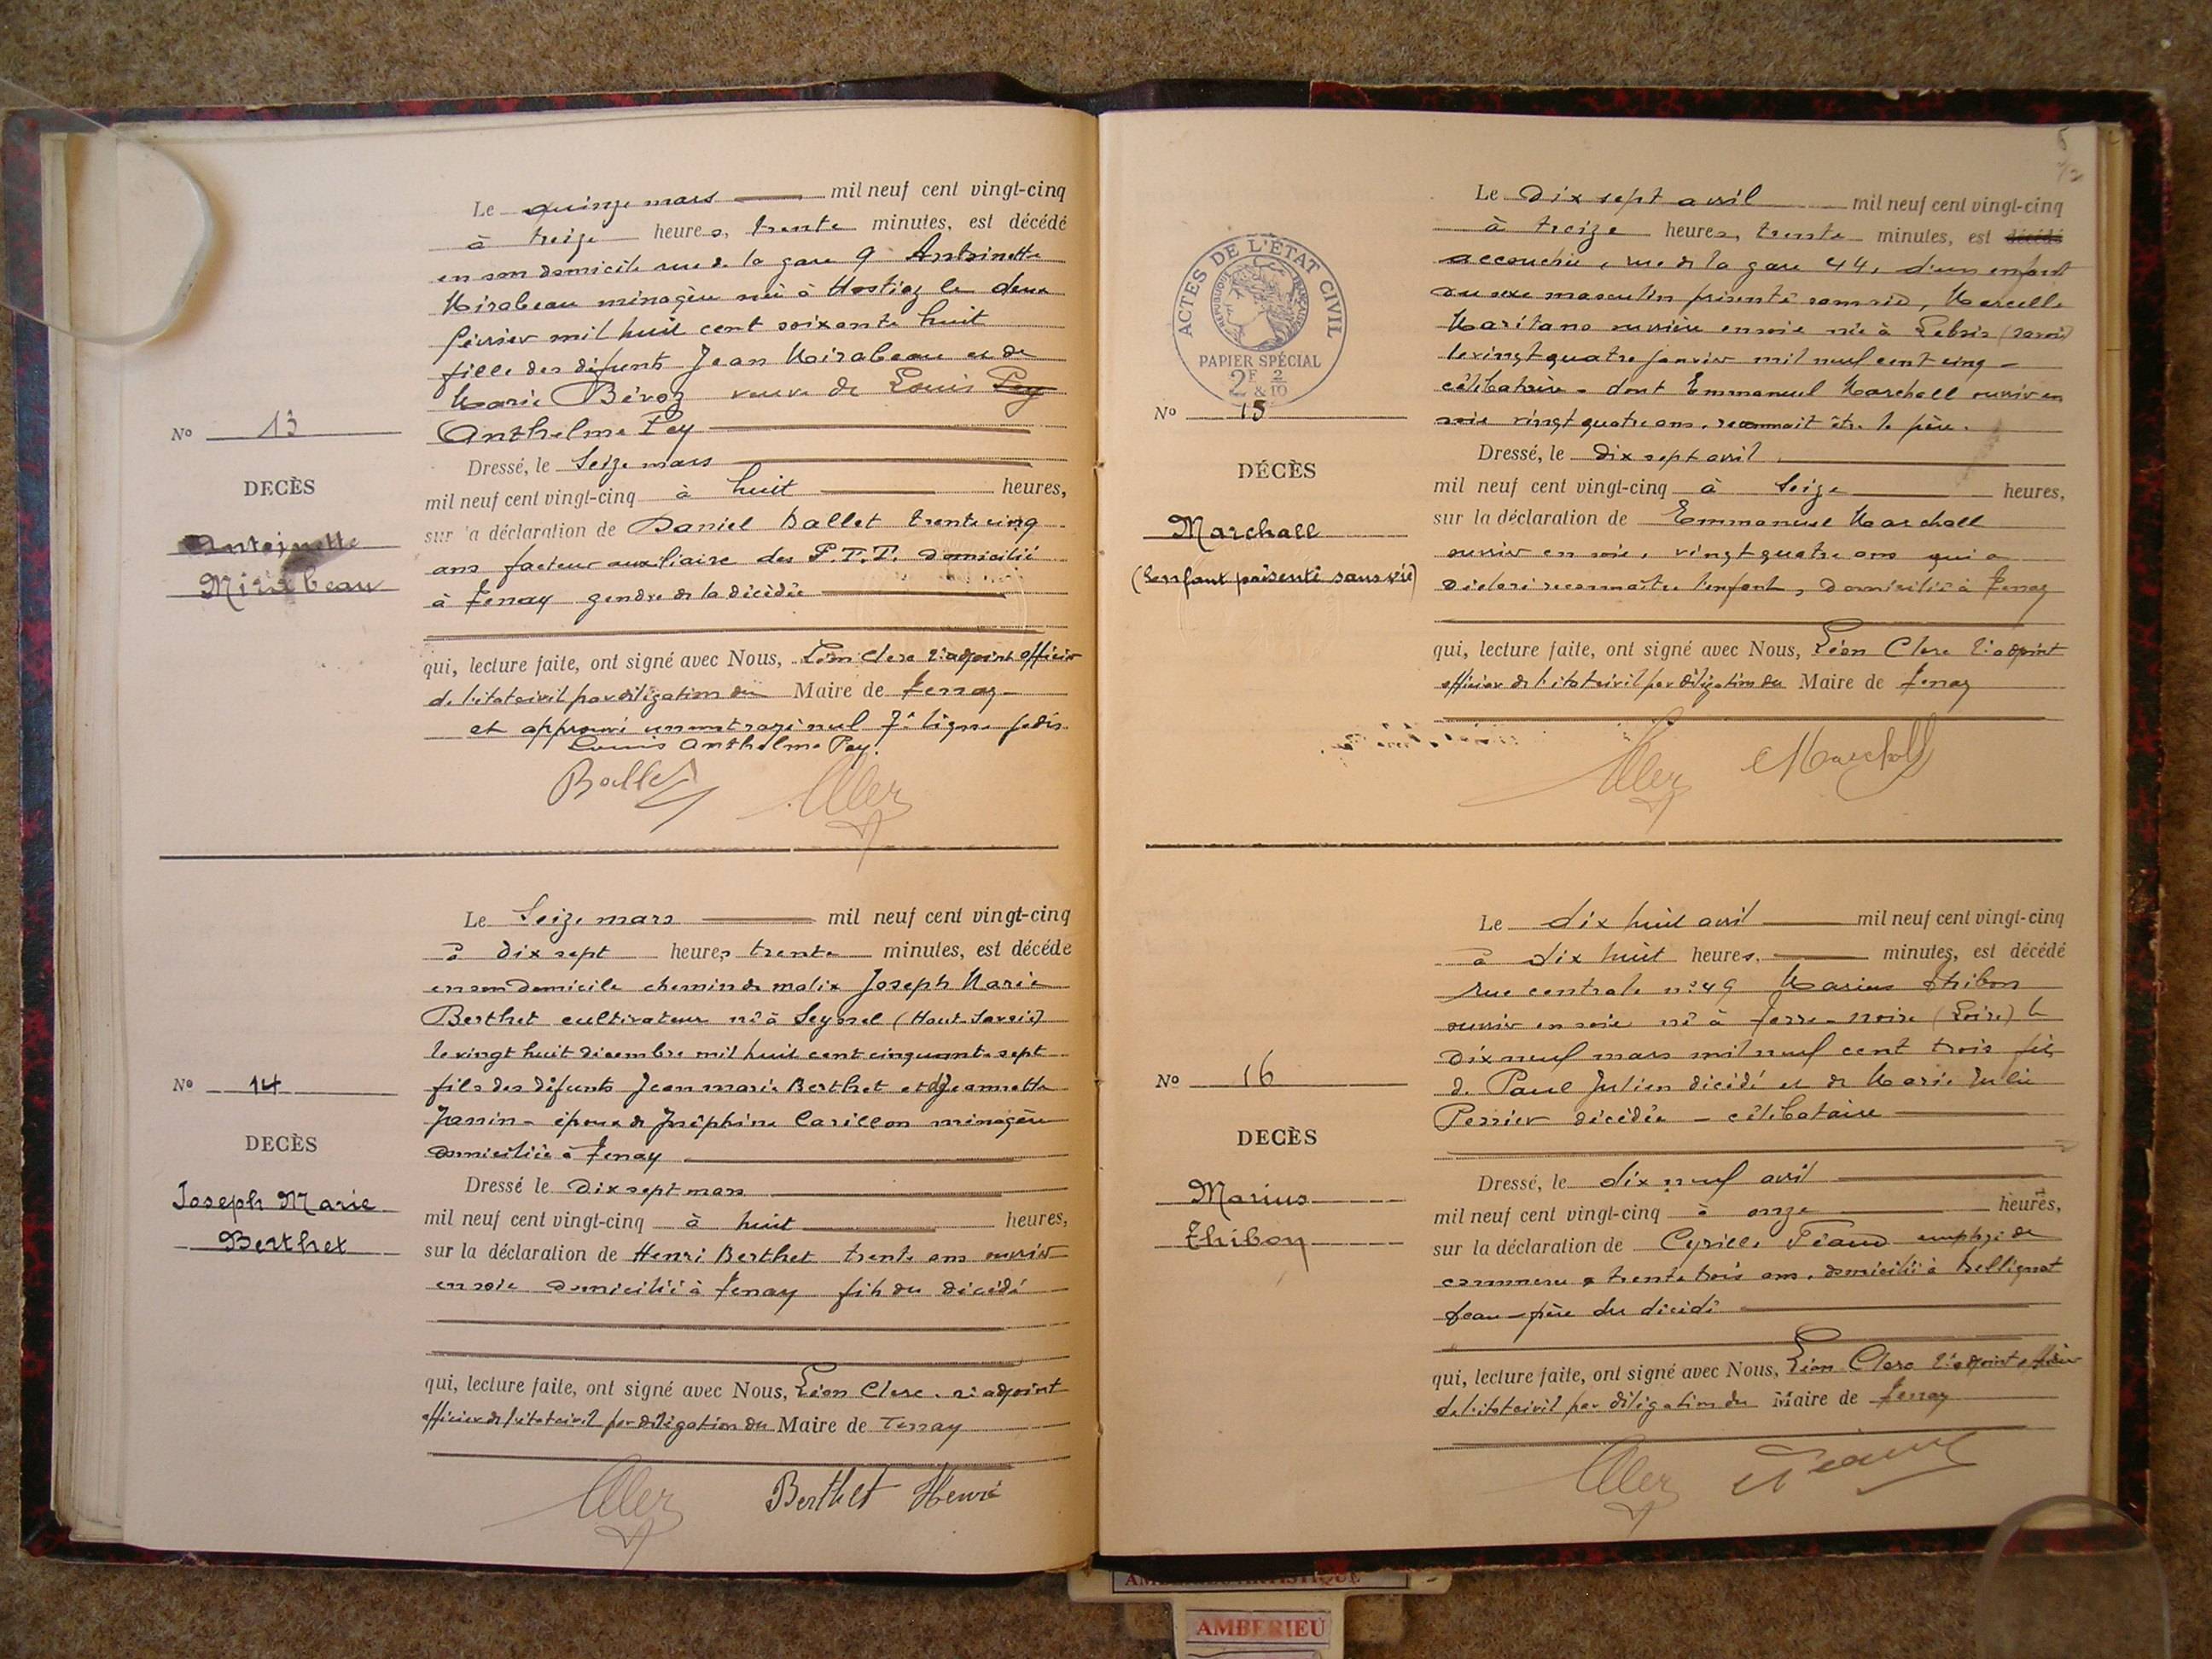 Le quinze mars mil neuf cent vingt-cinq
à treize heures, trente minutes, est décédé
en son domicile rue de la gare 9 Antoinette
Mirabeau ménagère née à Hostiaz le deux
février mil huit cent soixante huit
fille des défunts Jean Mirabeau et de
Marie Béroz veuve de Louis Pey
Anthelme Pey
Nº 13
DECÈS
Antoinette
Mirabeau
Dressé, le Seize mars
mil neuf cent vingt-cinq à huit heures,
sur la déclaration de Daniel Ballet trente cinq
ans facteur auxiliaire des P.T.T. domicilié
à Tenay gendre de la décédée
qui, lecture faite, ont signé avec Nous, Léon Clerc adjoint officier
de l'état civil par délégation du Maire de Tenay
et approuvé un mot rayé nul 7e ligne
Louis Anthelme Pey.
Ballet
Le Seize mars mil neuf cent vingt-cinq
à dix sept heures trente minutes, est décédé
en son domicile chemin de malix Joseph Marie
Berthet cultivateur né à Seyssel (Haute-Savoie)
le vingt huit décembre mil huit cent cinquante sept
fils des défunts Jean marie Berthet et de Jeannette
Janin - époux de Joséphine Carillon ménagère
domiciliée à Tenay
Nº 14
DECÈS
Joseph Marie
Berthet
Dressé le Dix sept mars
mil neuf cent vingt-cinq à huit heures,
sur la déclaration de Henri Berthet trente ans ouvrier
en soie domicilié à Tenay fils du décédé
qui, lecture faite, ont signé avec Nous, Léon Clerc adjoint
officier de l'état civil par délégation du Maire de Tenay
Berthet Henri
5
ACTES DE L'ÉTAT CIVIL
RÉPUBLIQUE FRANÇAISE
PAPIER SPÉCIAL
2F & 2/10
Le Dix sept avril mil neuf cent vingt-cinq
à treize heures, trente minutes, est décédé
accouchée, rue de la gare 44, d'un enfant
du sexe masculin présenté sans vie, Marcelle
Maritano ouvrière en soie née à (Savoie)
le vingt quatre janvier mil neuf cent cinq -
célibataire - dont Emmanuel Marchall ouvrier en
soie vingt quatre ans, reconnait être le père.
Nº 15
DÉCÈS
Marchall
(enfant présenté sans vie)
Dressé, le Dix sept avril
mil neuf cent vingt-cinq à Seize heures,
sur la déclaration de Emmanuel Marchall
ouvrier en soie, vingt quatre ans qui a
déclaré reconnaître l'enfant, domicilié à Tenay
qui, lecture faite, ont signé avec Nous, Léon Clerc adjoint
officier de l'état civil par délégation du Maire de Tenay
Marchall
Le dix huit avril mil neuf cent vingt-cinq
à dix huit heures, minutes, est décédé
rue centrale nº 49 Marius Thibon
ouvrier en soie né à Terre-noire (Loire) le
dix neuf mars mil neuf cent trois fils
de Paul Julien décédé et de Marie Julie
Perrier décédée - célibataire
Nº 16
DECÈS
Marius
Thibon
Dressé, le dix neuf avril
mil neuf cent vingt-cinq à onze heures,
sur la déclaration de Cyrille Féaud employé de
commerce trente trois ans, domicilié à Bellignat
beau-père du décédé
qui, lecture faite, ont signé avec Nous, Léon Clerc adjoint officier
de l'état civil par délégation du Maire de Tenay
AMBERIEU